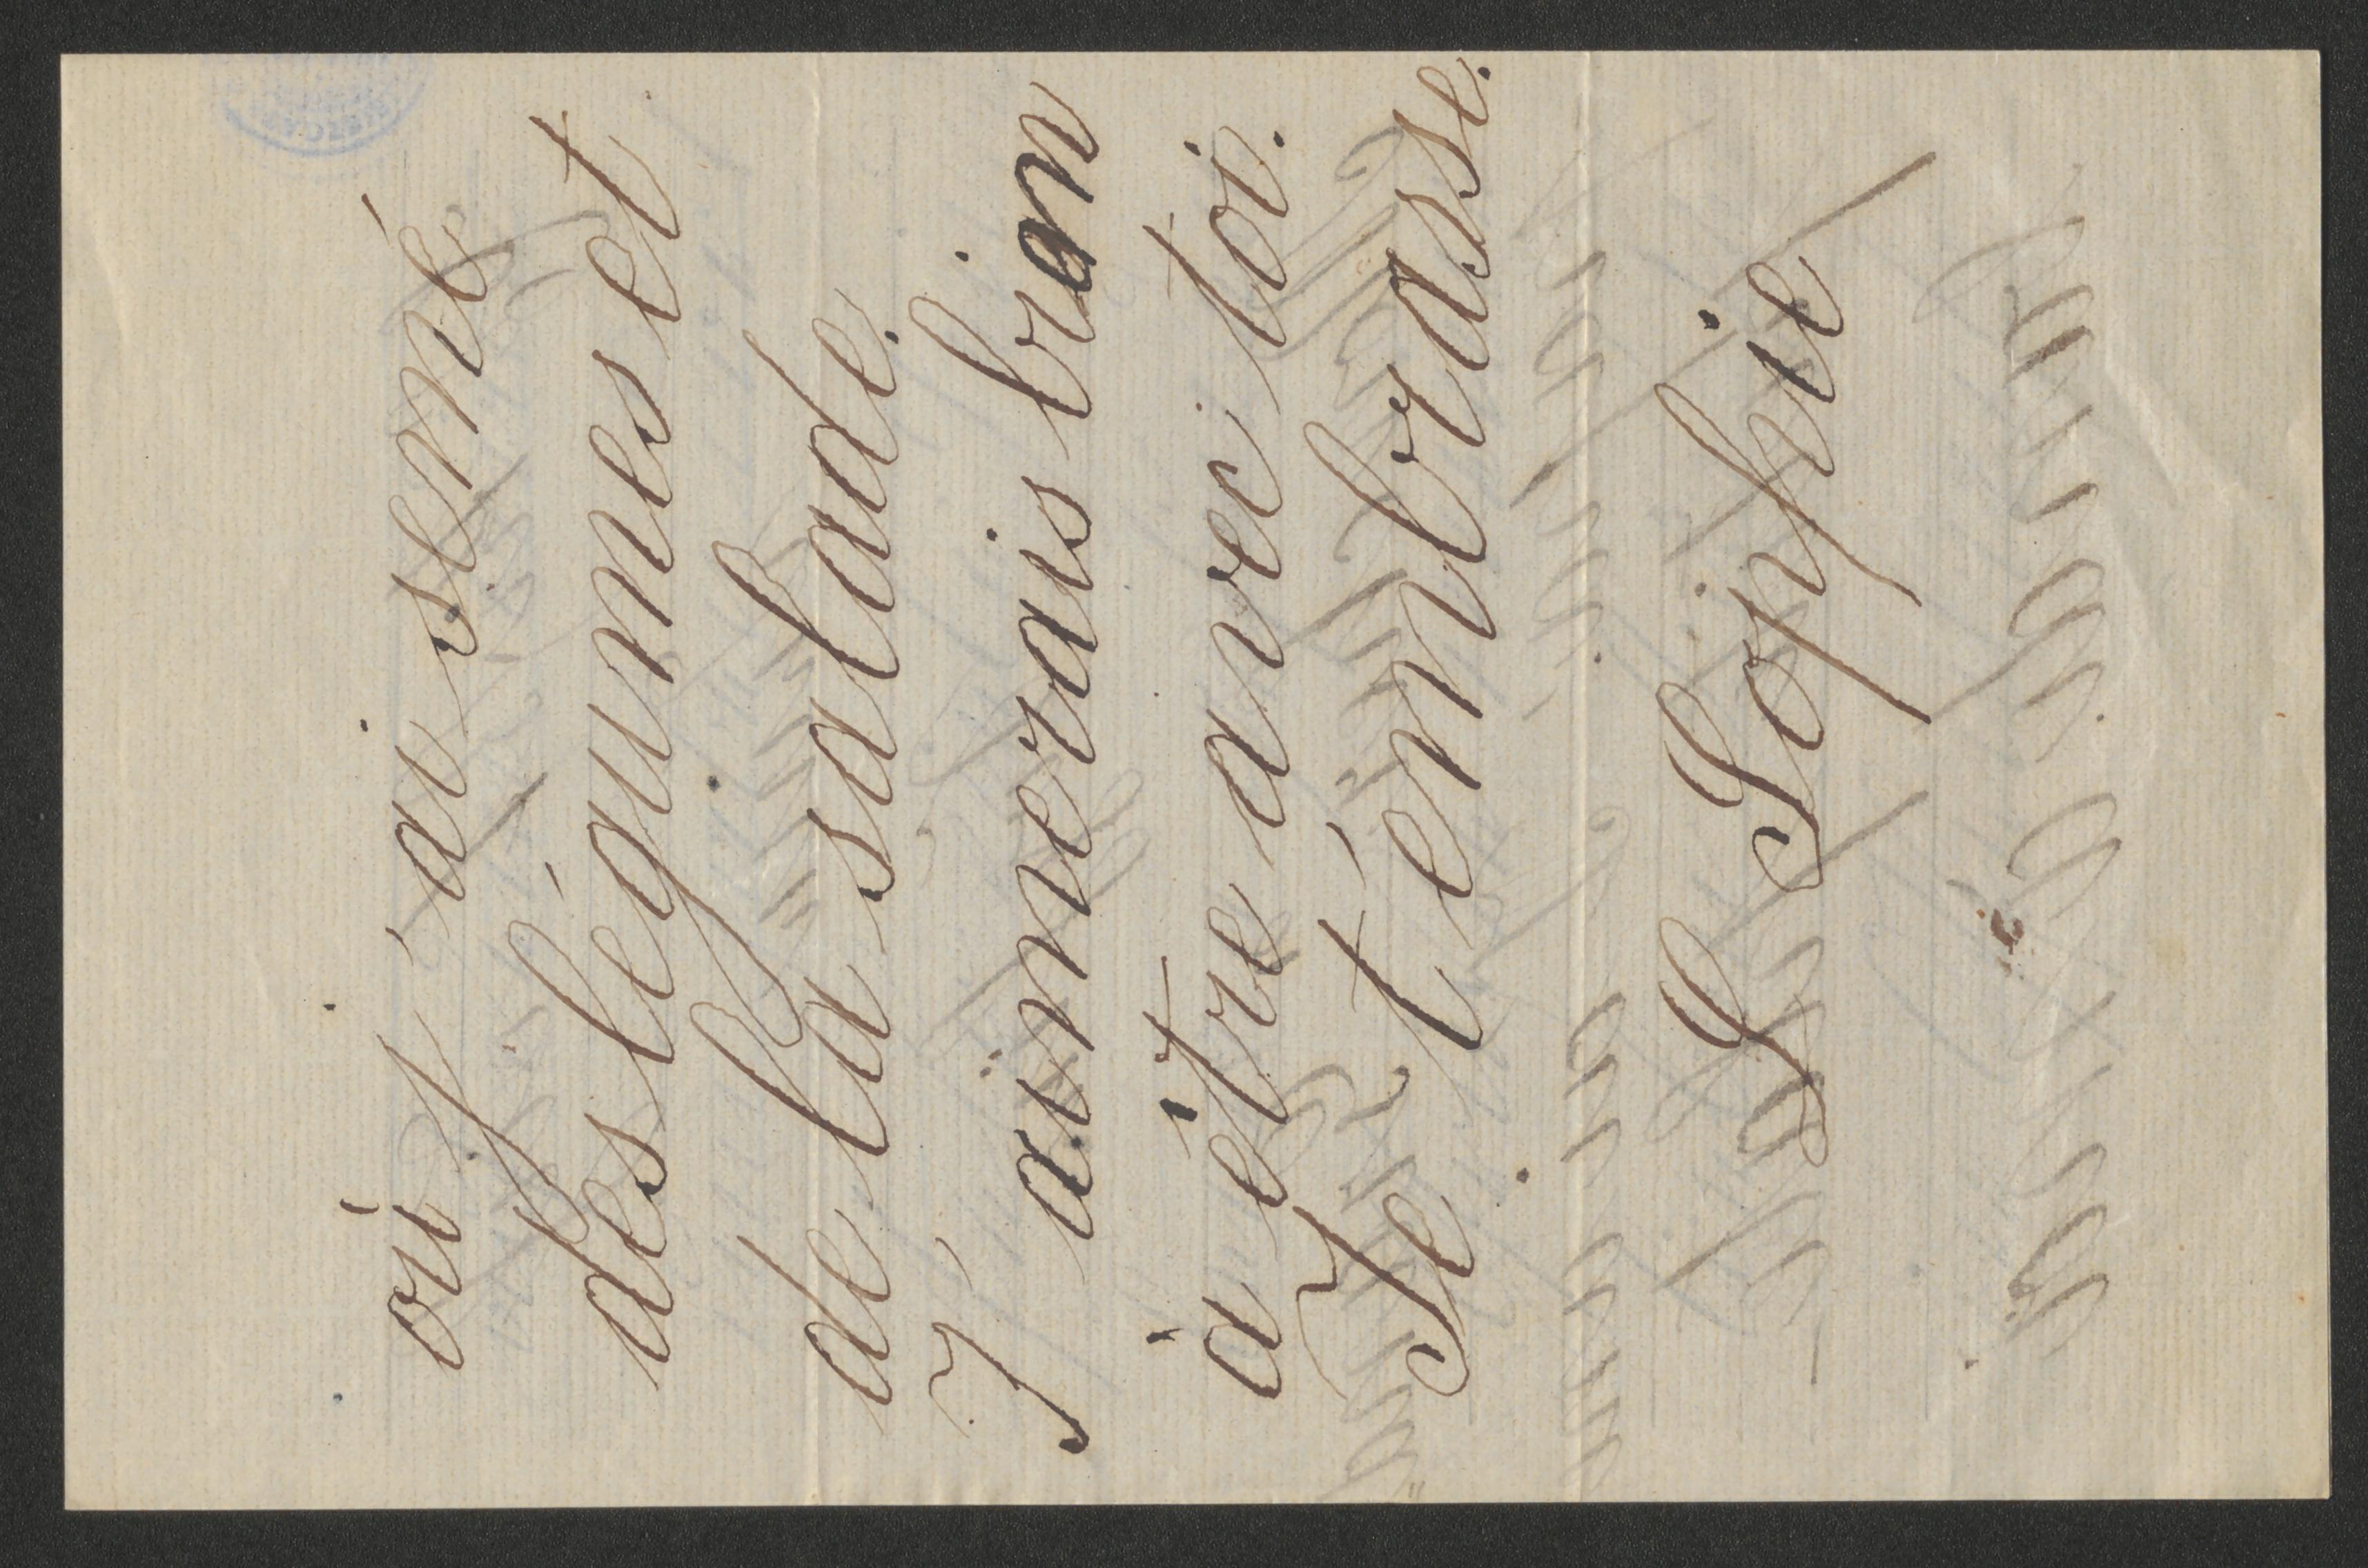 où j'ai semé
des légumes et
de la salade.
J'aimerais bien
à être avec toi.
Je t'embrasse.
S Sophie